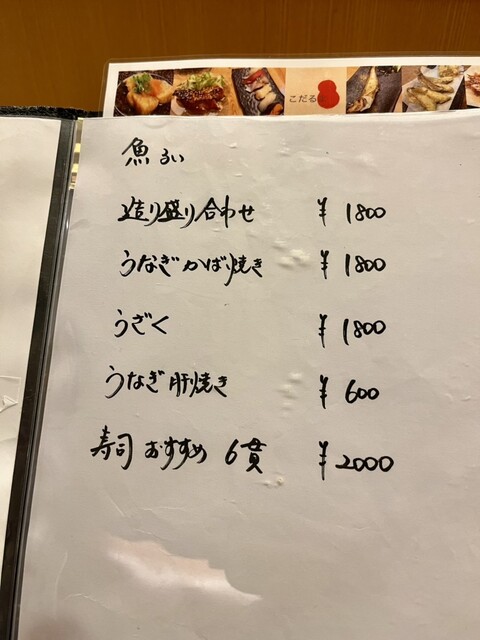 こだる
魚るい
造り盛り合わせ ¥1800
うなぎかば焼き ¥1800
うざく ¥1800
うなぎ肝焼き ¥600
寿司おすすめ 6貫 ¥2000